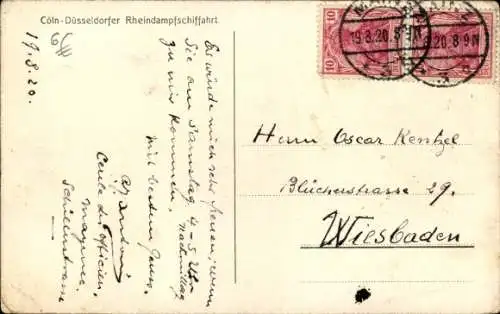 Cöln-Düsseldorfer Rheindampfschiffahrt.
19.8.20.
Es würde mich sehr freuen, wenn
Sie am Samstag 4-5 Uhr
nachmittag
zu mir kommen.
Mit bestem Gruss
Cercle des officiers
Mayence
Schillerstrasse
10
10
19.8.20. 8-9N
8.20. 8-9N
Herrn Oscar Kentzel
Blücherstrasse 29.
Wiesbaden